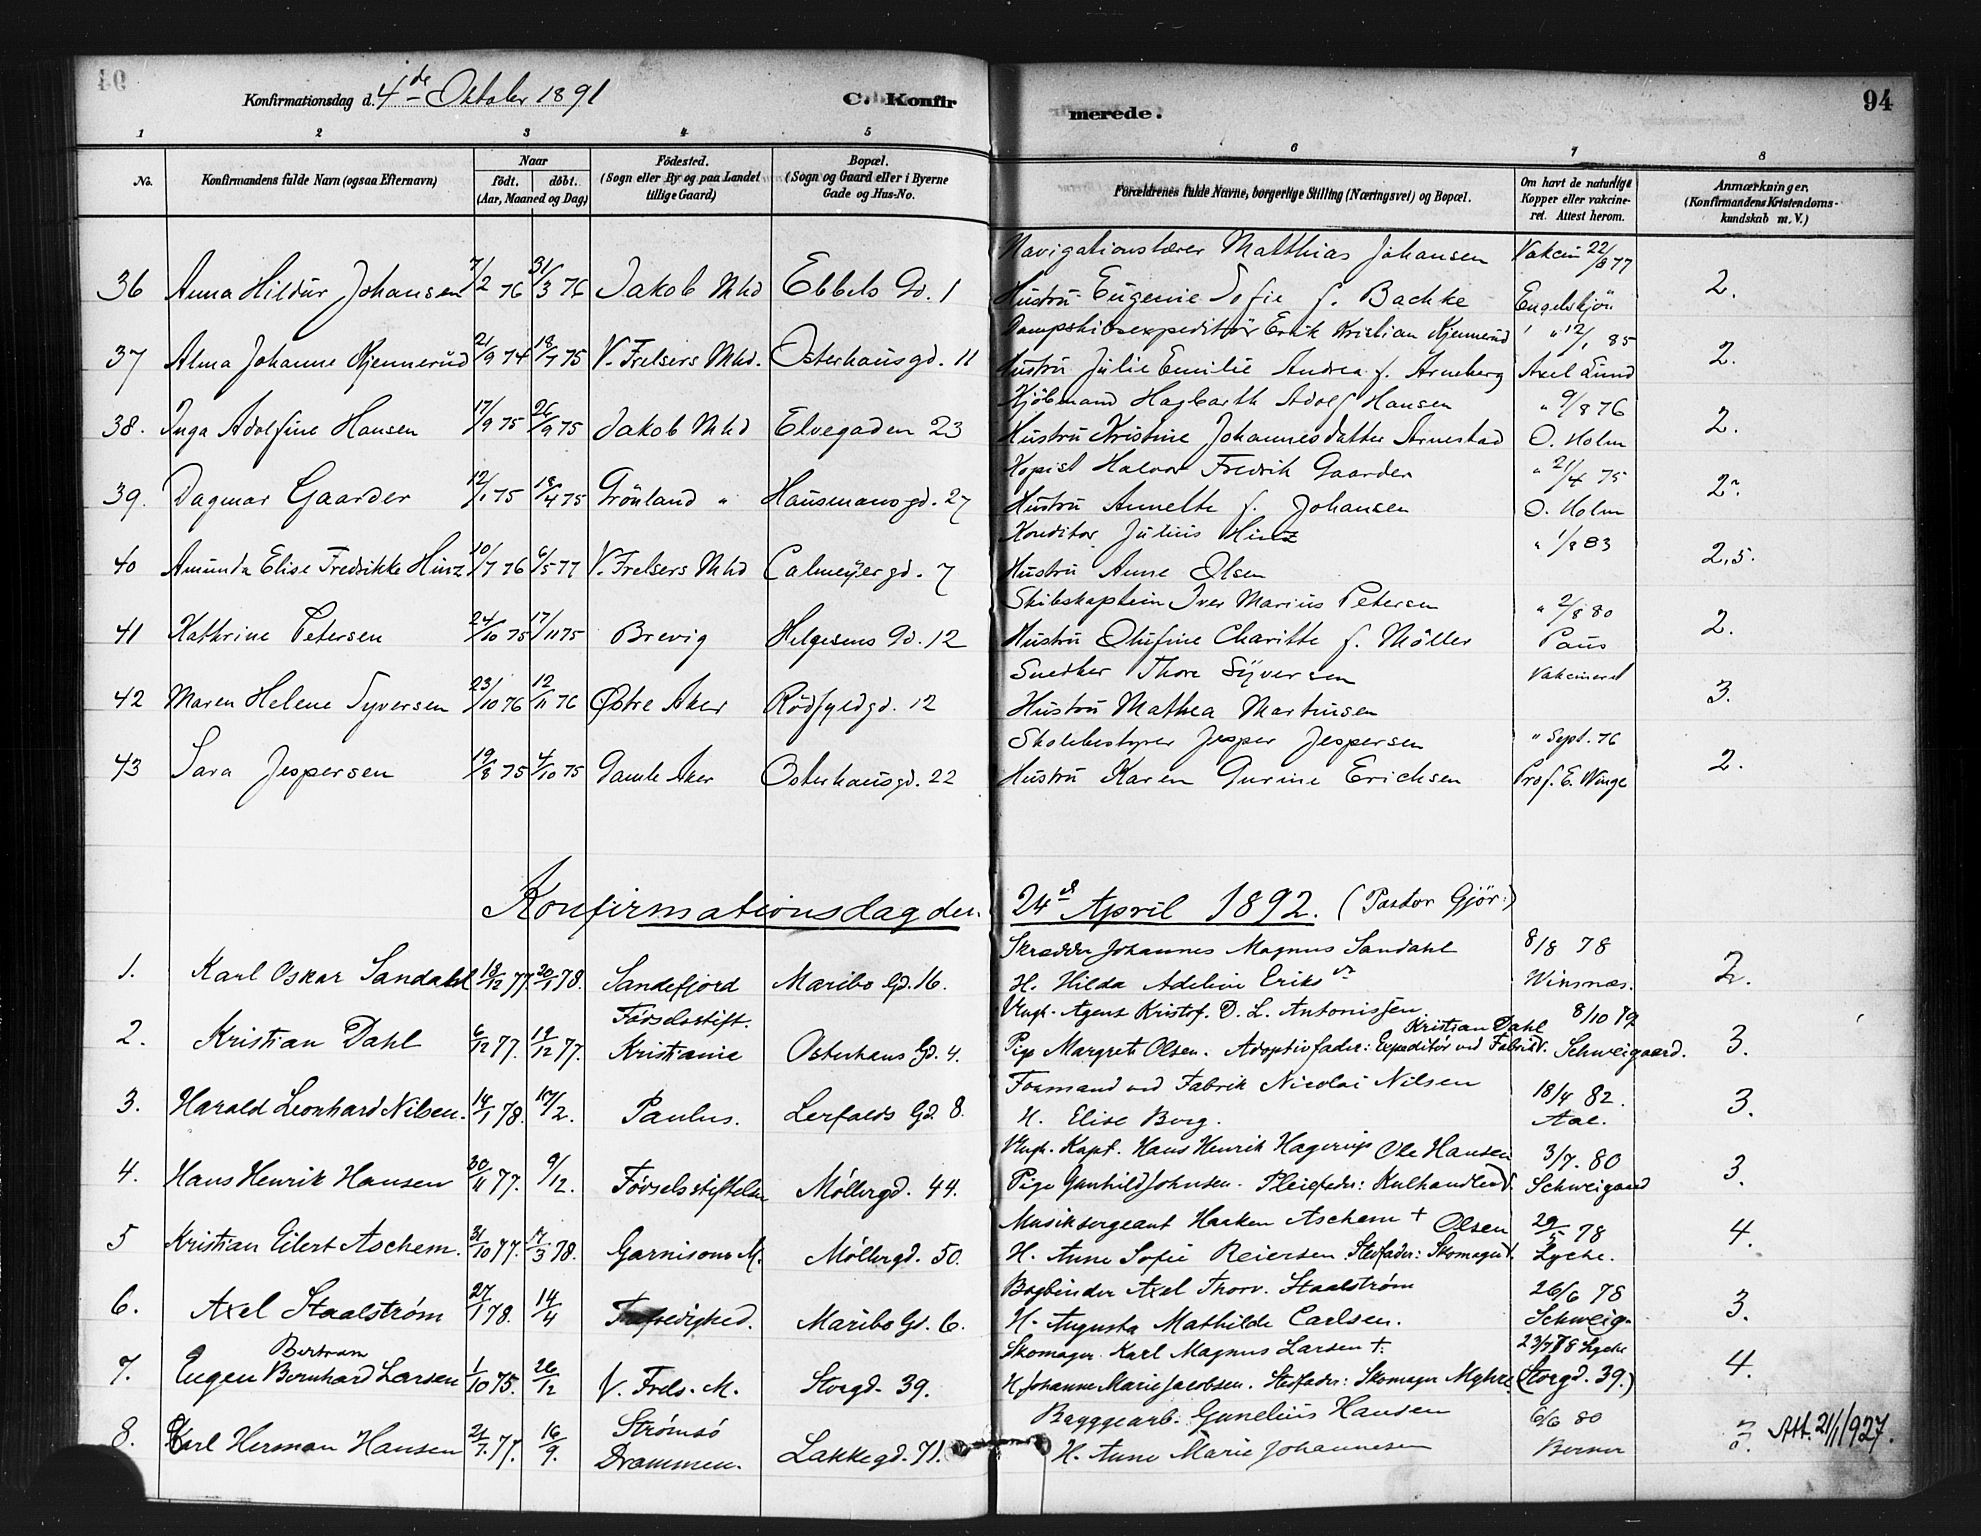 Konfirmationsdag d. 4de Oktober 1891
C. Konfirmerede.
94
1 2 3 4 5 6 7 8
No.
Konfirmandens fulde Navn (ogsaa Efternavn)
Naar
födt. döbt.
(Aar, Maaned og Dag)
Födested.
(Sogn eller By og paa Landet
tillige Gaard)
Bopæl.
(Sogn og Gaard eller i Byerne
Gade og Hus-No.
Forældrenes fulde Navne, borgerlige Stilling (Næringsvei) og Bopæl.
Om havt de naturlige
Kopper eller vakcine-
ret. Attest herom.
Anmærkninger.
(Konfirmandens Kristendoms-
kundskab m. V.)
Navigationslærer Matthias Johansen Vakcin 22/8 77
36 Anna Hildur Johansen 7/2 76 31/3 76 Jakob Mhd Ebbels Gd. 1 Hustru Eugenie Sofie f. Backke Engelskjön 2.
Dampskibsexpeditör Erik Kristian Kjennerud " 12/1 85
37 Alma Johanne Kjennerud 21/9 74 18/7 75 V. Frelsers Mhd. Osterhausgd. 11 Hustru Julie Emilie Andrea f. Arneberg Axel Lund 2.
Kjöbmand Hagbarth Adolf Hansen " 9/8 76
38. Inga Adolfine Hansen 17/9 75 26/9 75 Jakob Mhd Elvegaden 23 Hustru Kristine Johannesdatter Arnestad O. Holm 2.
Kopist Halvor Fredrik Gaarder " 21/4 75
39. Dagmar Gaarder 12/1 75 18/4 75 Grönland " Hausmansgd. 27 Hustru Annette f. Johansen O. Holm 2.
Konditor Julius Hinz " 1/8 83
40 Amunda Elise Fredrikke Hinz 10/7 76 6/5 77 V. Frelsers Mhd Calmeyergd. 7 Hustru Anne Olsen 2,5.
Skibskaptein Iver Marius Petersen " 2/8 80
41 Kathrine Petersen 24/10 75 17/11 75 Brevig Helgesens Gd. 12 Hustru Olufine Charitte f. Möller Paus 2.
Snedker Thore Syversen Vakcineret
42 Maren Helene Syversen 23/10 76 12/11 76 Østre Aker Rödfyldgd. 12 Hustru Mathea Martinsen 3.
Skolebestyrer Jesper Jespersen " Sept. 76
43 Sara Jespersen 19/8 75 4/10 75 Gamle Aker Osterhausgd. 22 Hustru Karen Gurine Erichsen Prof. E. Winge 2.
Konfirmationsdag den 24de April 1892. (Pastor Gjör:)
Skrædder Johannes Magnus Sandahl 8/8 78
1. Karl Oskar Sandahl 18/12 77. 20/1 78. Sandefjord Maribo Gd. 16. H. Hilda Adeline Eriks Winsnæs. 2.
Födselsstift. Ungk. Agent Kristof. D. L. Antonissen. 8/10 79
Kristian Dahl
2. Kristian Dahl 6/12 77. 19/12 77. Kristiania Osterhaus Gd. 4. Pige Margrete Olsen. Adoptivfader: Expeditör ved Fabrikv. Schweigaard. 3.
Formand ved Fabrik Nicolai Nilsen 18/4 82.
3. Harald Leonhard Nilsen. 14/1 78. 17/2. Paulus. Lerfalds Gd. 8. H. Elise Borg. Aal. 3.
Ungk. Kapt. Hans Henrik Hagerup Ole Hansen 3/7. 80
4. Hans Henrik Hansen 30/11 77. 9/12. Födselsstiftelsen Möllergd. 44. Pige Gunhild Johnsen. Pleiefader: Kulhandler Schweigaard 3.
Musiksergeant Haaken Aschem + Olsen 29/5 78
5 Kristian Eilert Aschem. 31/10 77. 17/3 78. Garnisons M. Möllergd. 50. H. Anne Sofie Reiersen. Stedfader: Skomager Lyche. 4.
Bogbinder Axel Thorv. Staalström 26/6 78
6. Axel Staalström 27/1 78. 14/4 Maribo Gd. 6. H. Augusta Mathilde Carlsen. Schweig. 3.
Bertram Skomager Karl Magnus Larsen +. 23/7 78 Lyche
7. Eugen Bernhard Larsen 1/10 75. 26/12 V. Frels. M. Storgd. 39. H. Johanne Marie Jacobsen. Stedfader: Skomager Myhre (Storgd. 39.) 4.
Strömsö Bryggearb. Gunelius Hansen 6/6 80
8. Karl Herman Hansen 21/7. 77. 16/9. Drammen. Lakkegd. 71. H. Anne Marie Johannesen Berner 3. Att. 21/1 1927.